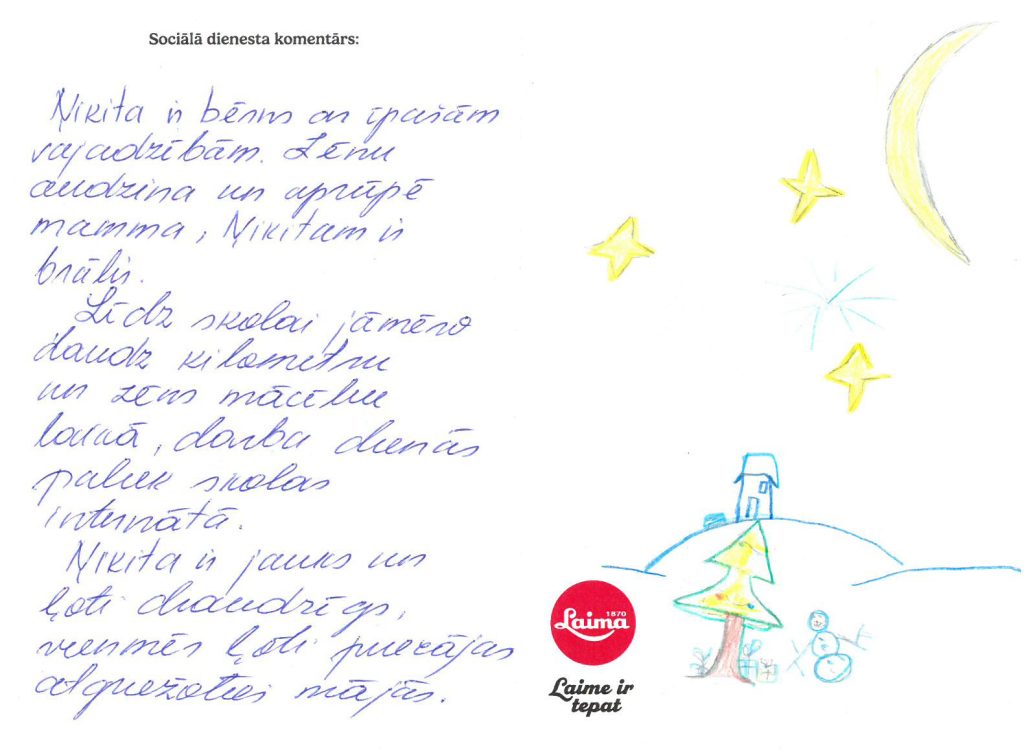 Sociālā dienesta komentārs:
Ņikita ir bērns ar īpašām
vajadzībām. Zēnu
audzina un aprūpē
mamma, Ņikitam ir
brālis.
Līdz skolai jāmēro
daudz kilometru
un zēns mācību
laikā, darba dienās
paliek skolas
internātā.
Ņikita ir jauks un
ļoti draudzīgs,
vienmēs ļoti priecājas
atgriežoties mājās.
Laima
1870
Laime ir
tepat